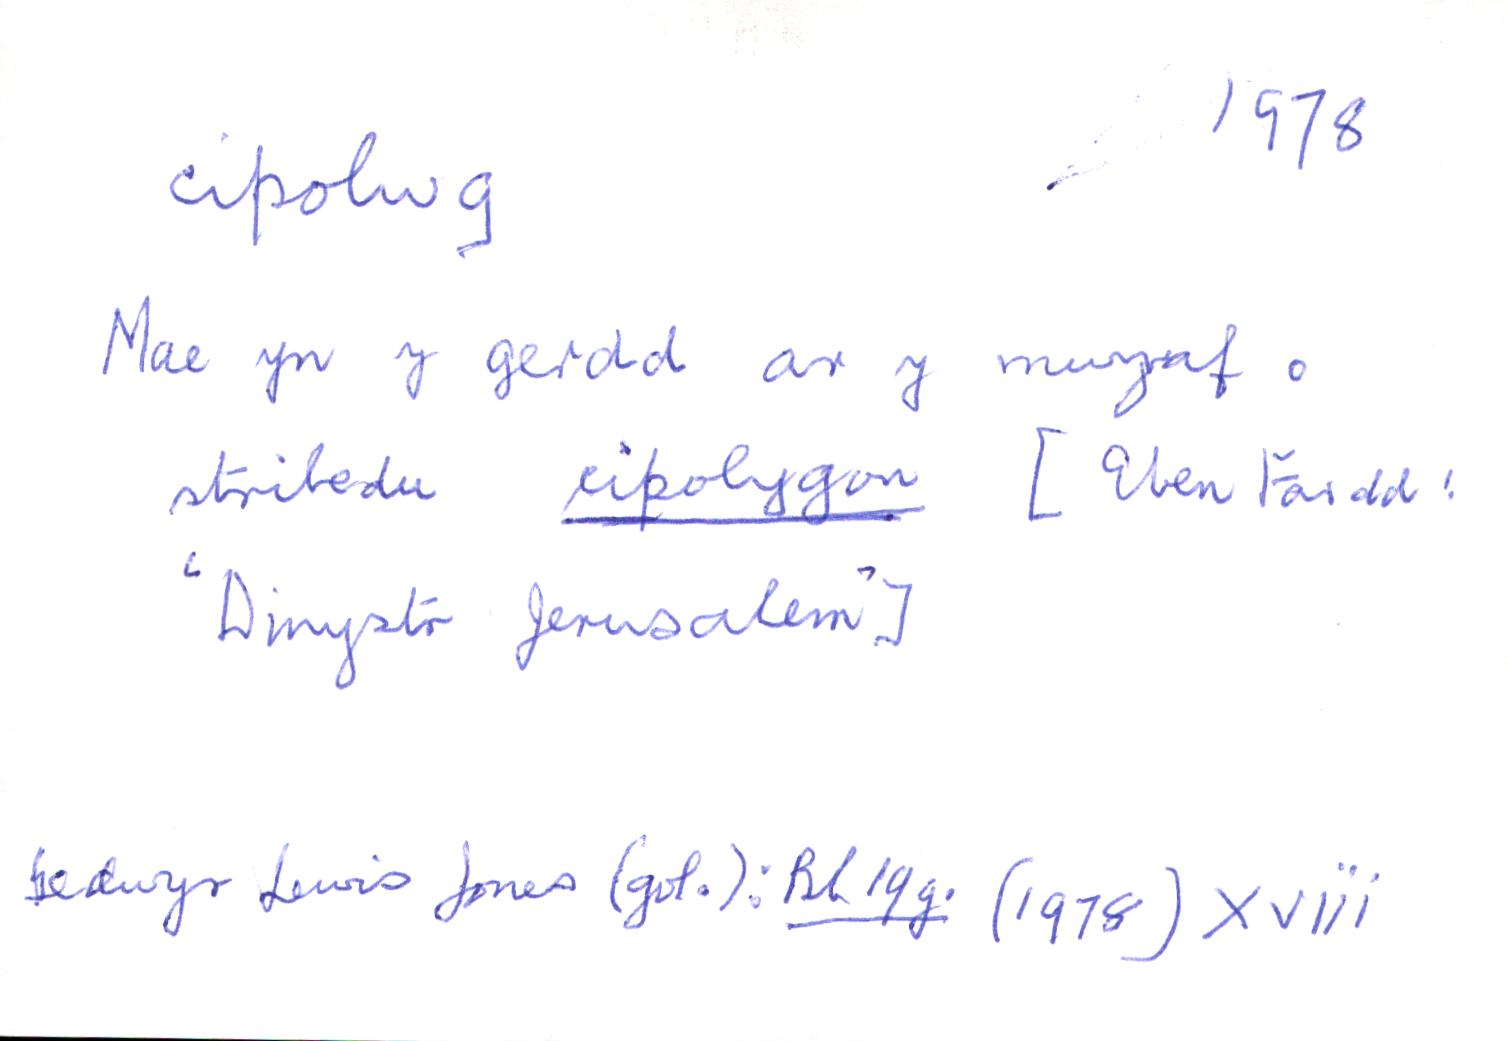 1978
cipolwg
Mae yn y gerdd ar y mwyaf o
stribedu cipolygon [Eben Fardd:
"Dinystr Jerusalem"]
Bedwyr Lewis Jones (gol.): Bl 19g. (1978) xviii